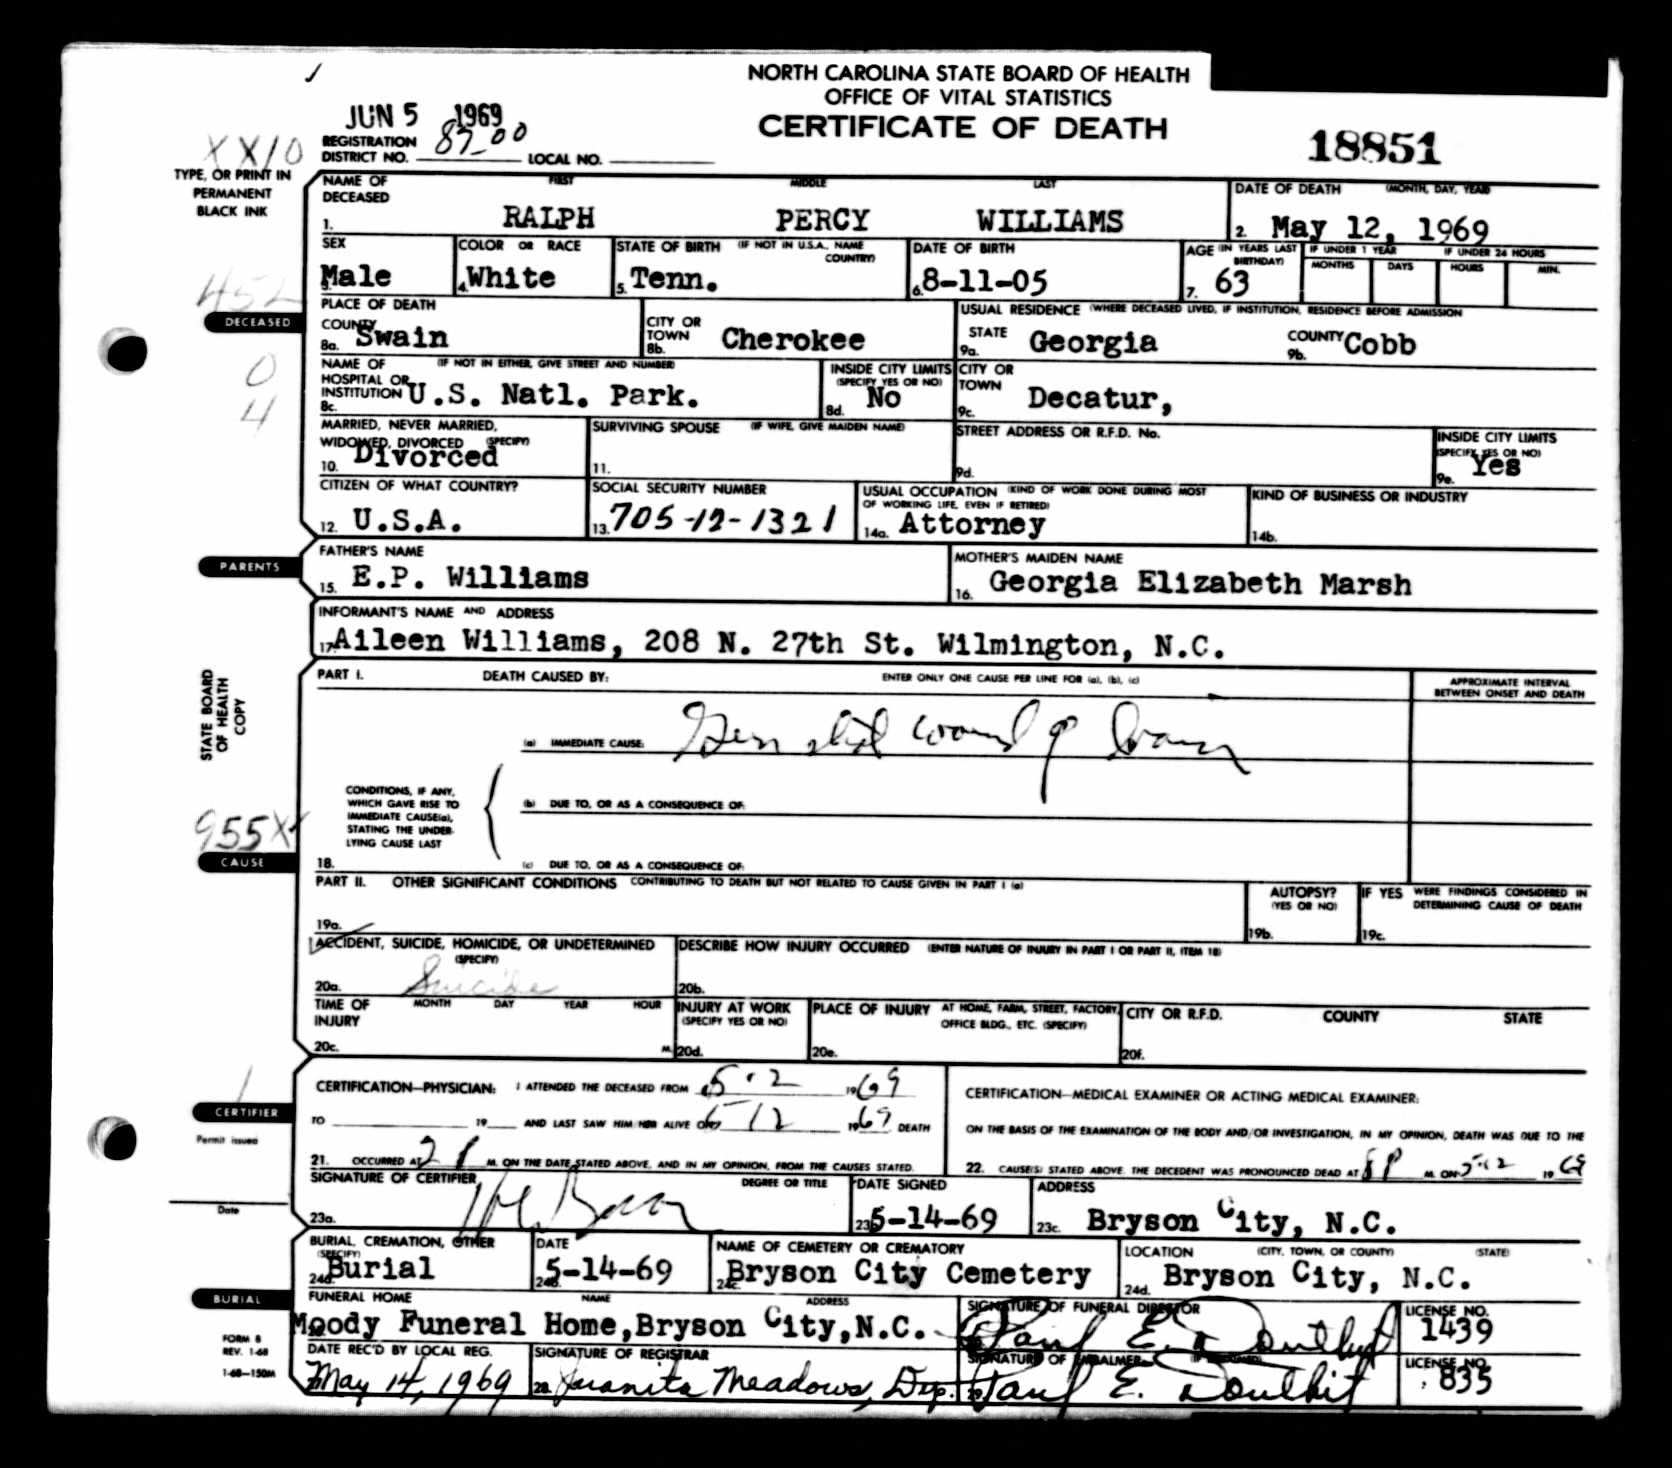 NORTH CAROLINA STATE BOARD OF HEALTH
OFFICE OF VITAL STATISTICS
CERTIFICATE OF DEATH
18851
JUN 5 1969
REGISTRATION DISTRICT NO. 87-00 LOCAL NO.
XX10
TYPE, OR PRINT IN
PERMANENT
BLACK INK
NAME OF DECEASED FIRST MIDDLE LAST
1. RALPH PERCY WILLIAMS
DATE OF DEATH (MONTH, DAY, YEAR)
2. May 12, 1969
SEX
3. Male
COLOR OR RACE
4. White
STATE OF BIRTH (IF NOT IN U.S.A., NAME COUNTRY)
5. Tenn.
DATE OF BIRTH
6. 8-11-05
AGE (IN YEARS LAST BIRTHDAY)
7. 63
IF UNDER 1 YEAR
MONTHS DAYS
IF UNDER 24 HOURS
HOURS MIN.
452
DECEASED
0
4
PLACE OF DEATH
COUNTY
8a. Swain
CITY OR TOWN
8b. Cherokee
USUAL RESIDENCE (WHERE DECEASED LIVED, IF INSTITUTION, RESIDENCE BEFORE ADMISSION
STATE
9a. Georgia
COUNTY
9b. Cobb
NAME OF HOSPITAL OR INSTITUTION (IF NOT IN EITHER, GIVE STREET AND NUMBER)
8c. U.S. Natl. Park.
INSIDE CITY LIMITS (SPECIFY YES OR NO)
8d. No
CITY OR TOWN
9c. Decatur,
MARRIED, NEVER MARRIED, WIDOWED, DIVORCED (SPECIFY)
10. Divorced
SURVIVING SPOUSE (IF WIFE, GIVE MAIDEN NAME)
11.
STREET ADDRESS OR R.F.D. No.
9d.
INSIDE CITY LIMITS (SPECIFY YES OR NO)
9e. Yes
CITIZEN OF WHAT COUNTRY?
12. U.S.A.
SOCIAL SECURITY NUMBER
13. 705-12-1321
USUAL OCCUPATION (KIND OF WORK DONE DURING MOST OF WORKING LIFE, EVEN IF RETIRED)
14a. Attorney
KIND OF BUSINESS OR INDUSTRY
14b.
PARENTS
FATHER'S NAME
15. E.P. Williams
MOTHER'S MAIDEN NAME
16. Georgia Elizabeth Marsh
INFORMANT'S NAME AND ADDRESS
17. Aileen Williams, 208 N. 27th St. Wilmington, N.C.
STATE BOARD
OF HEALTH
COPY
PART I. DEATH CAUSED BY: ENTER ONLY ONE CAUSE PER LINE FOR (a), (b), (c)
APPROXIMATE INTERVAL
BETWEEN ONSET AND DEATH
(a) IMMEDIATE CAUSE: Gun shot wound of brain
CONDITIONS, IF ANY,
WHICH GAVE RISE TO
IMMEDIATE CAUSE(a),
STATING THE UNDER-
LYING CAUSE LAST
(b) DUE TO, OR AS A CONSEQUENCE OF:
955X
CAUSE
18. (c) DUE TO, OR AS A CONSEQUENCE OF:
PART II. OTHER SIGNIFICANT CONDITIONS CONTRIBUTING TO DEATH BUT NOT RELATED TO CAUSE GIVEN IN PART I (a)
19a.
AUTOPSY?
(YES OR NO)
19b.
IF YES WERE FINDINGS CONSIDERED IN
DETERMINING CAUSE OF DEATH
19c.
ACCIDENT, SUICIDE, HOMICIDE, OR UNDETERMINED
(SPECIFY)
20a. Suicide
DESCRIBE HOW INJURY OCCURRED (ENTER NATURE OF INJURY IN PART I OR PART II, ITEM 18)
20b.
TIME OF INJURY MONTH DAY YEAR HOUR
20c. M.
INJURY AT WORK
(SPECIFY YES OR NO)
20d.
PLACE OF INJURY AT HOME, FARM, STREET, FACTORY,
OFFICE BLDG., ETC. (SPECIFY)
20e.
CITY OR R.F.D. COUNTY STATE
20f.
CERTIFIER
Permit issued
Date
CERTIFICATION—PHYSICIAN: I ATTENDED THE DECEASED FROM 5-12 1969
TO 19 AND LAST SAW HIM/HER ALIVE ON 5-12 1969 DEATH
21. OCCURRED AT M. ON THE DATE STATED ABOVE, AND IN MY OPINION, FROM THE CAUSES STATED.
CERTIFICATION—MEDICAL EXAMINER OR ACTING MEDICAL EXAMINER:
ON THE BASIS OF THE EXAMINATION OF THE BODY AND/OR INVESTIGATION, IN MY OPINION, DEATH WAS DUE TO THE
22. CAUSE(S) STATED ABOVE. THE DECEDENT WAS PRONOUNCED DEAD AT 8P M. ON 5-12 1969
SIGNATURE OF CERTIFIER DEGREE OR TITLE
23a.
DATE SIGNED
23b. 5-14-69
ADDRESS
23c. Bryson City, N.C.
BURIAL, CREMATION, OTHER (SPECIFY)
24a. Burial
DATE
24b. 5-14-69
NAME OF CEMETERY OR CREMATORY
24c. Bryson City Cemetery
LOCATION (CITY, TOWN, OR COUNTY) (STATE)
24d. Bryson City, N.C.
BURIAL
FORM 8
REV. 1-68
1-68-150M
FUNERAL HOME NAME ADDRESS
Moody Funeral Home, Bryson City, N.C.
SIGNATURE OF FUNERAL DIRECTOR
Paul E. Douthit
LICENSE NO.
1439
DATE REC'D BY LOCAL REG.
May 14, 1969
SIGNATURE OF REGISTRAR
28. Juanita Meadows, Dep.
SIGNATURE OF EMBALMER
Paul E. Douthit
LICENSE NO.
835